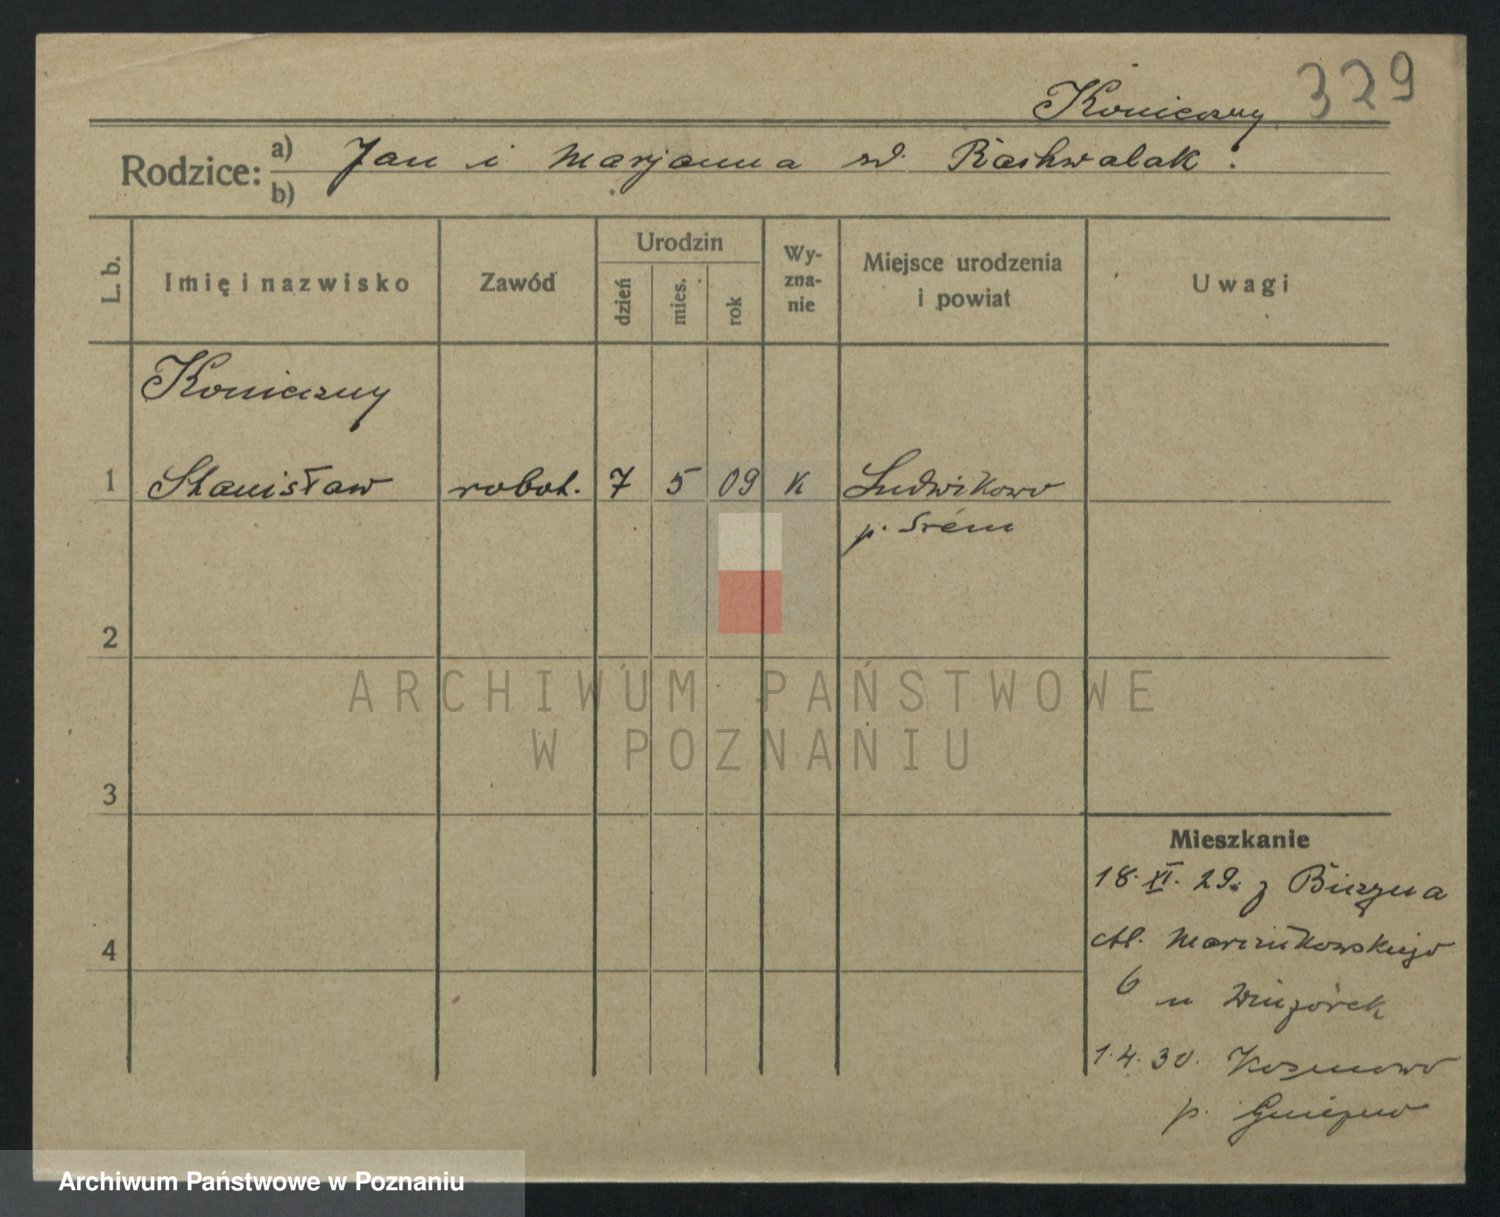 329
Konieczny
Rodzice: a) Jan i Marjanna zd. Ratwalak.
b)
L. b. Imię i nazwisko Zawód Urodzin dzień mies. rok Wyzna-nie Miejsce urodzenia i powiat Uwagi
Konieczny
1 Stanisław robot. 7 5 09 K Ludwikowo
p. Śrem
2
ARCHIWUM PAŃSTWOWE
W POZNANIU
3
Mieszkanie
18. XI. 29. z
4 Al. Marcinkowskiego
6 u
1.4.30.
p. Gniezno
Archiwum Państwowe w Poznaniu